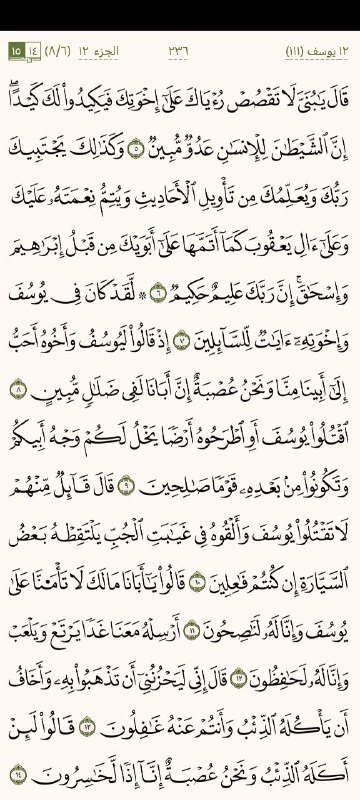 ١٢ يوسف (١١١) ٢٣٦ الجزء ١٢ (٨/٦) ١٤ ١٥
قَالَ يَٰبُنَيَّ لَا تَقْصُصْ رُءْيَاكَ عَلَىٰٓ إِخْوَتِكَ فَيَكِيدُوا۟ لَكَ كَيْدًا ۖ
إِنَّ ٱلشَّيْطَٰنَ لِلْإِنسَٰنِ عَدُوٌّ مُّبِينٌ ٥ وَكَذَٰلِكَ يَجْتَبِيكَ
رَبُّكَ وَيُعَلِّمُكَ مِن تَأْوِيلِ ٱلْأَحَادِيثِ وَيُتِمُّ نِعْمَتَهُۥ عَلَيْكَ
وَعَلَىٰٓ ءَالِ يَعْقُوبَ كَمَآ أَتَمَّهَا عَلَىٰٓ أَبَوَيْكَ مِن قَبْلُ إِبْرَٰهِيمَ
وَإِسْحَٰقَ ۚ إِنَّ رَبَّكَ عَلِيمٌ حَكِيمٌ ٦ ۞ لَّقَدْ كَانَ فِى يُوسُفَ
وَإِخْوَتِهِۦٓ ءَايَٰتٌ لِّلسَّآئِلِينَ ٧ إِذْ قَالُوا۟ لَيُوسُفُ وَأَخُوهُ أَحَبُّ
إِلَىٰٓ أَبِينَا مِنَّا وَنَحْنُ عُصْبَةٌ إِنَّ أَبَانَا لَفِى ضَلَٰلٍ مُّبِينٍ ٨
ٱقْتُلُوا۟ يُوسُفَ أَوِ ٱطْرَحُوهُ أَرْضًا يَخْلُ لَكُمْ وَجْهُ أَبِيكُمْ
وَتَكُونُوا۟ مِنۢ بَعْدِهِۦ قَوْمًا صَٰلِحِينَ ٩ قَالَ قَآئِلٌ مِّنْهُمْ
لَا تَقْتُلُوا۟ يُوسُفَ وَأَلْقُوهُ فِى غَيَٰبَتِ ٱلْجُبِّ يَلْتَقِطْهُ بَعْضُ
ٱلسَّيَّارَةِ إِن كُنتُمْ فَٰعِلِينَ ١٠ قَالُوا۟ يَٰٓأَبَانَا مَا لَكَ لَا تَأْمَ۫نَّا عَلَىٰ
يُوسُفَ وَإِنَّا لَهُۥ لَنَٰصِحُونَ ١١ أَرْسِلْهُ مَعَنَا غَدًا يَرْتَعْ وَيَلْعَبْ
وَإِنَّا لَهُۥ لَحَٰفِظُونَ ١٢ قَالَ إِنِّى لَيَحْزُنُنِىٓ أَن تَذْهَبُوا۟ بِهِۦ وَأَخَافُ
أَن يَأْكُلَهُ ٱلذِّئْبُ وَأَنتُمْ عَنْهُ غَٰفِلُونَ ١٣ قَالُوا۟ لَئِنْ
أَكَلَهُ ٱلذِّئْبُ وَنَحْنُ عُصْبَةٌ إِنَّآ إِذًا لَّخَٰسِرُونَ ١٤